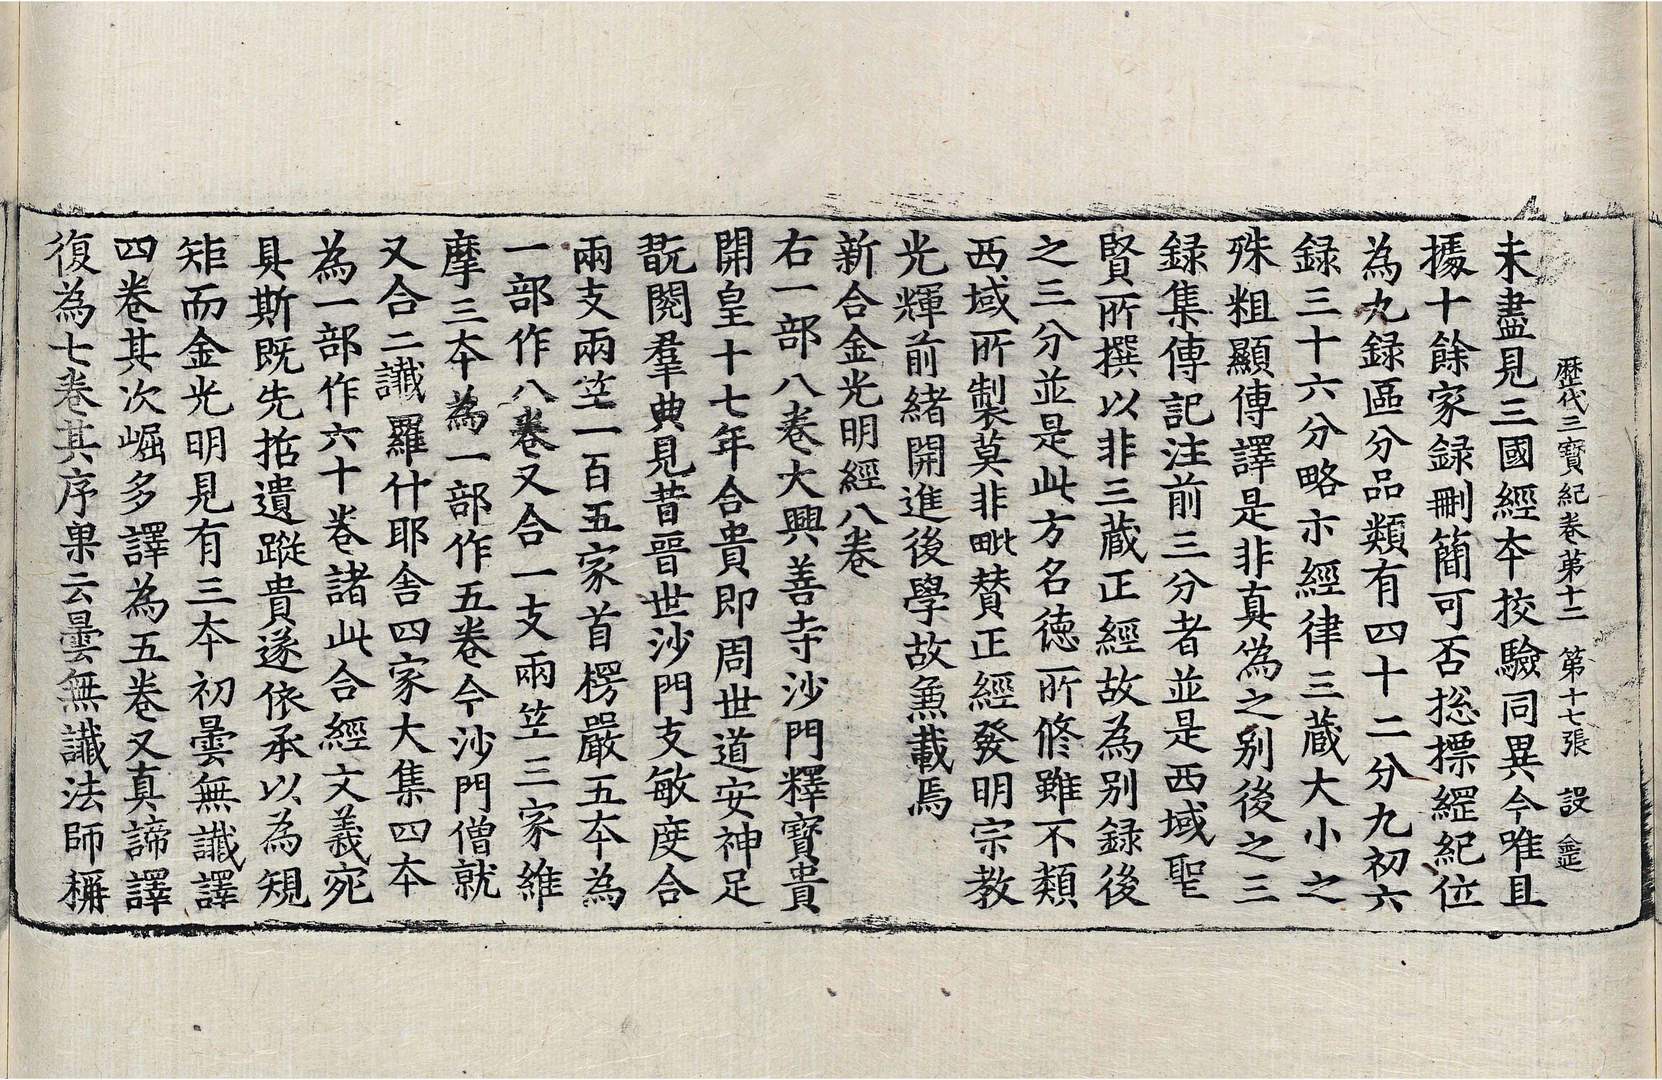 歷代三寶紀卷第十二 第十七張 設
未盡見三國經本挍驗同異今唯且
據十餘家録刪簡可否揔摽綱紀位
為九録區分品類有四十二分九初六
録三十六分略示經律三藏大小之
殊粗顯傳譯是非真偽之别後之三
録集傳記注前三分者並是西域聖
賢所撰以非三藏正經故為别録後
之三分並是此方名徳所修雖不類
西域所製莫非毗賛正經發明宗教
光輝前緒開進後學故兼載焉
新合金光明經八卷
右一部八卷大興善寺沙門釋寶貴
開皇十七年合貴即周世道安神足
翫閱羣典見昔晉世沙門支敏度合
兩支兩竺一百五家首楞嚴五本為
一部作八卷又合一支兩竺三家維
摩三本為一部作五卷今沙門僧就
又合二讖羅什耶舍四家大集四本
為一部作六十卷諸此合經文義宛
具斯既先括遺蹤貴遂依承以為規
矩而金光明見有三本初曇無讖譯
四卷其次崛多譯為五卷又真諦譯
復為七卷其序果云曇無讖法師稱